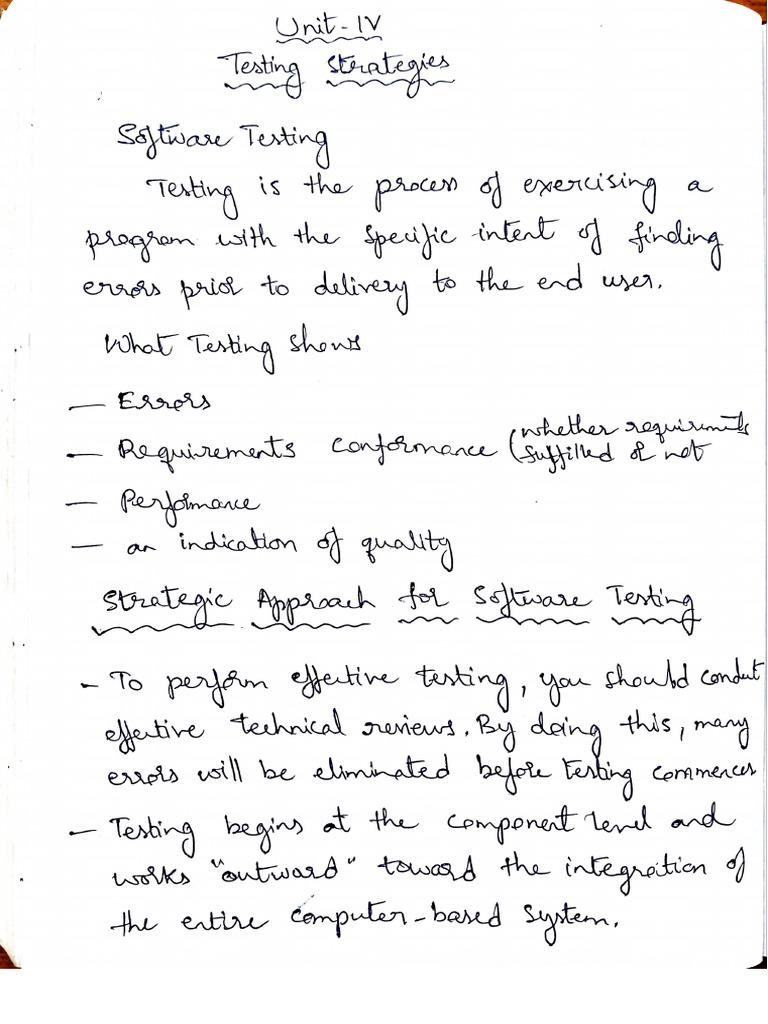 Unit-IV
Testing Strategies
Software Testing
Testing is the process of exercising a
program with the specific intent of finding
errors prior to delivery to the end user.
What Testing shows
— Errors
— Requirements conformance (whether requirements
fulfilled or not
— Performance
— an indication of quality
Strategic Approach for Software Testing
- To perform effective testing, you should conduct
effective technical reviews. By doing this, many
errors will be eliminated before testing commences
— Testing begins at the component level and
works "outward" toward the integration of
the entire computer-based system.